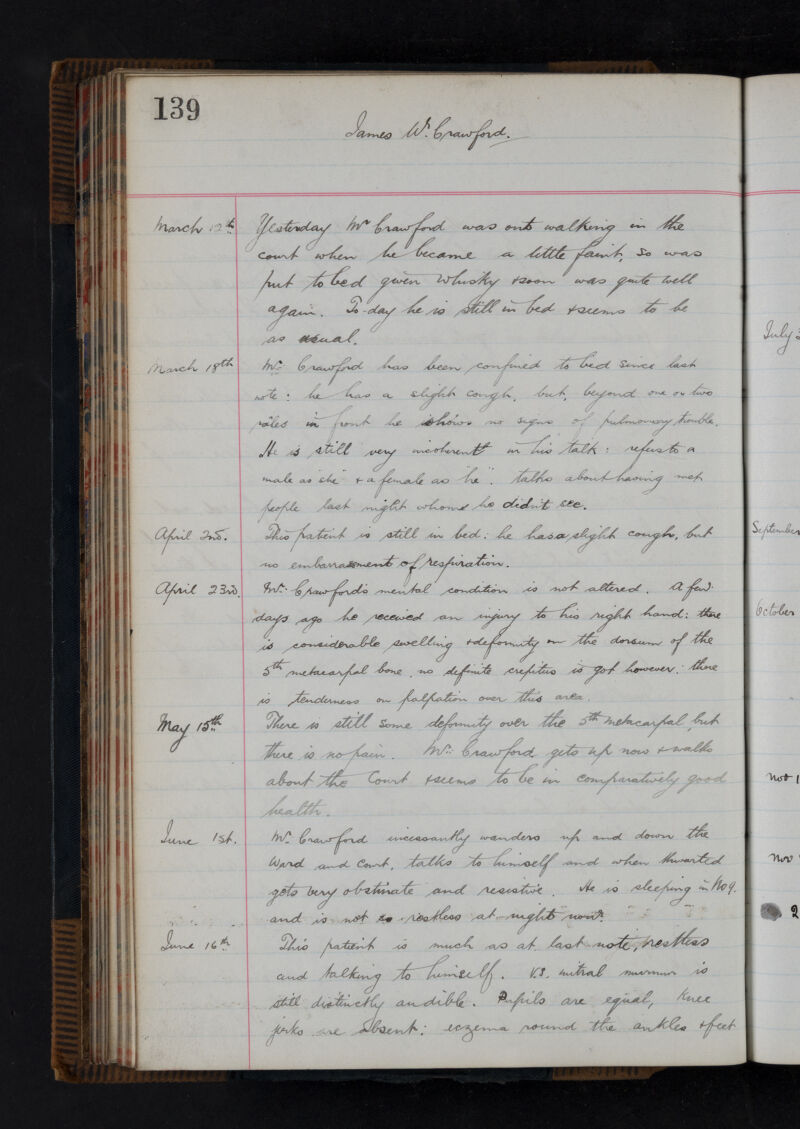 139
James Wr. Crawford.
March 12th Yesterday Mr Crawford was out walking in the
court when he became a little faint, so was
put to bed given whisky & soon was quite well
again. To-day he is still in bed & seems to be
as usual.
March 18th Mr. Crawford has been confined to bed since last
note: he has a slight cough, but, beyond one or two
râles in front he shows no signs of pulmonary trouble.
He is still very incoherent in his talk: refers to a
male as "she" & a female as "he". talks about having met
people last night whom he didn't see.
April 2nd. This patient is still in bed: he has a slight cough, but
no embarrassment of respiration.
April 23rd. Mr. Crawford's mental condition is not altered. A few
days ago he received an injury to his right hand: there
is considerable swelling & deformity on the dorsum of the
5th metacarpal bone, no definite crepitus is got however: there
is tenderness on palpation over this area.
May 15th There is still some deformity over the 5th metacarpal, but
there is no pain. Mr. Crawford gets up now & walks
about the Court & seems to be in comparatively good
health.
June 1st. Mr. Crawford incessantly wanders up and down the
Ward and Court, talks to himself and when thwarted
gets very obstinate and resistive. He is sleeping in No 9.
and is not so restless at night now.
June 16th This patient is much as at last note, restless
and talking to himself. V.S. mitral murmur is
still distinctly audible. Pupils are equal, Knee
jerks are absent: eczema round the ankles & feet
July 3
September
October
Nov 1
Nov
2